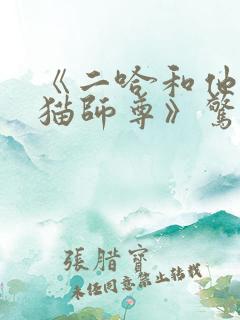 《二哈和他
猫師尊》驚
張腊寶
未经同意禁止转载